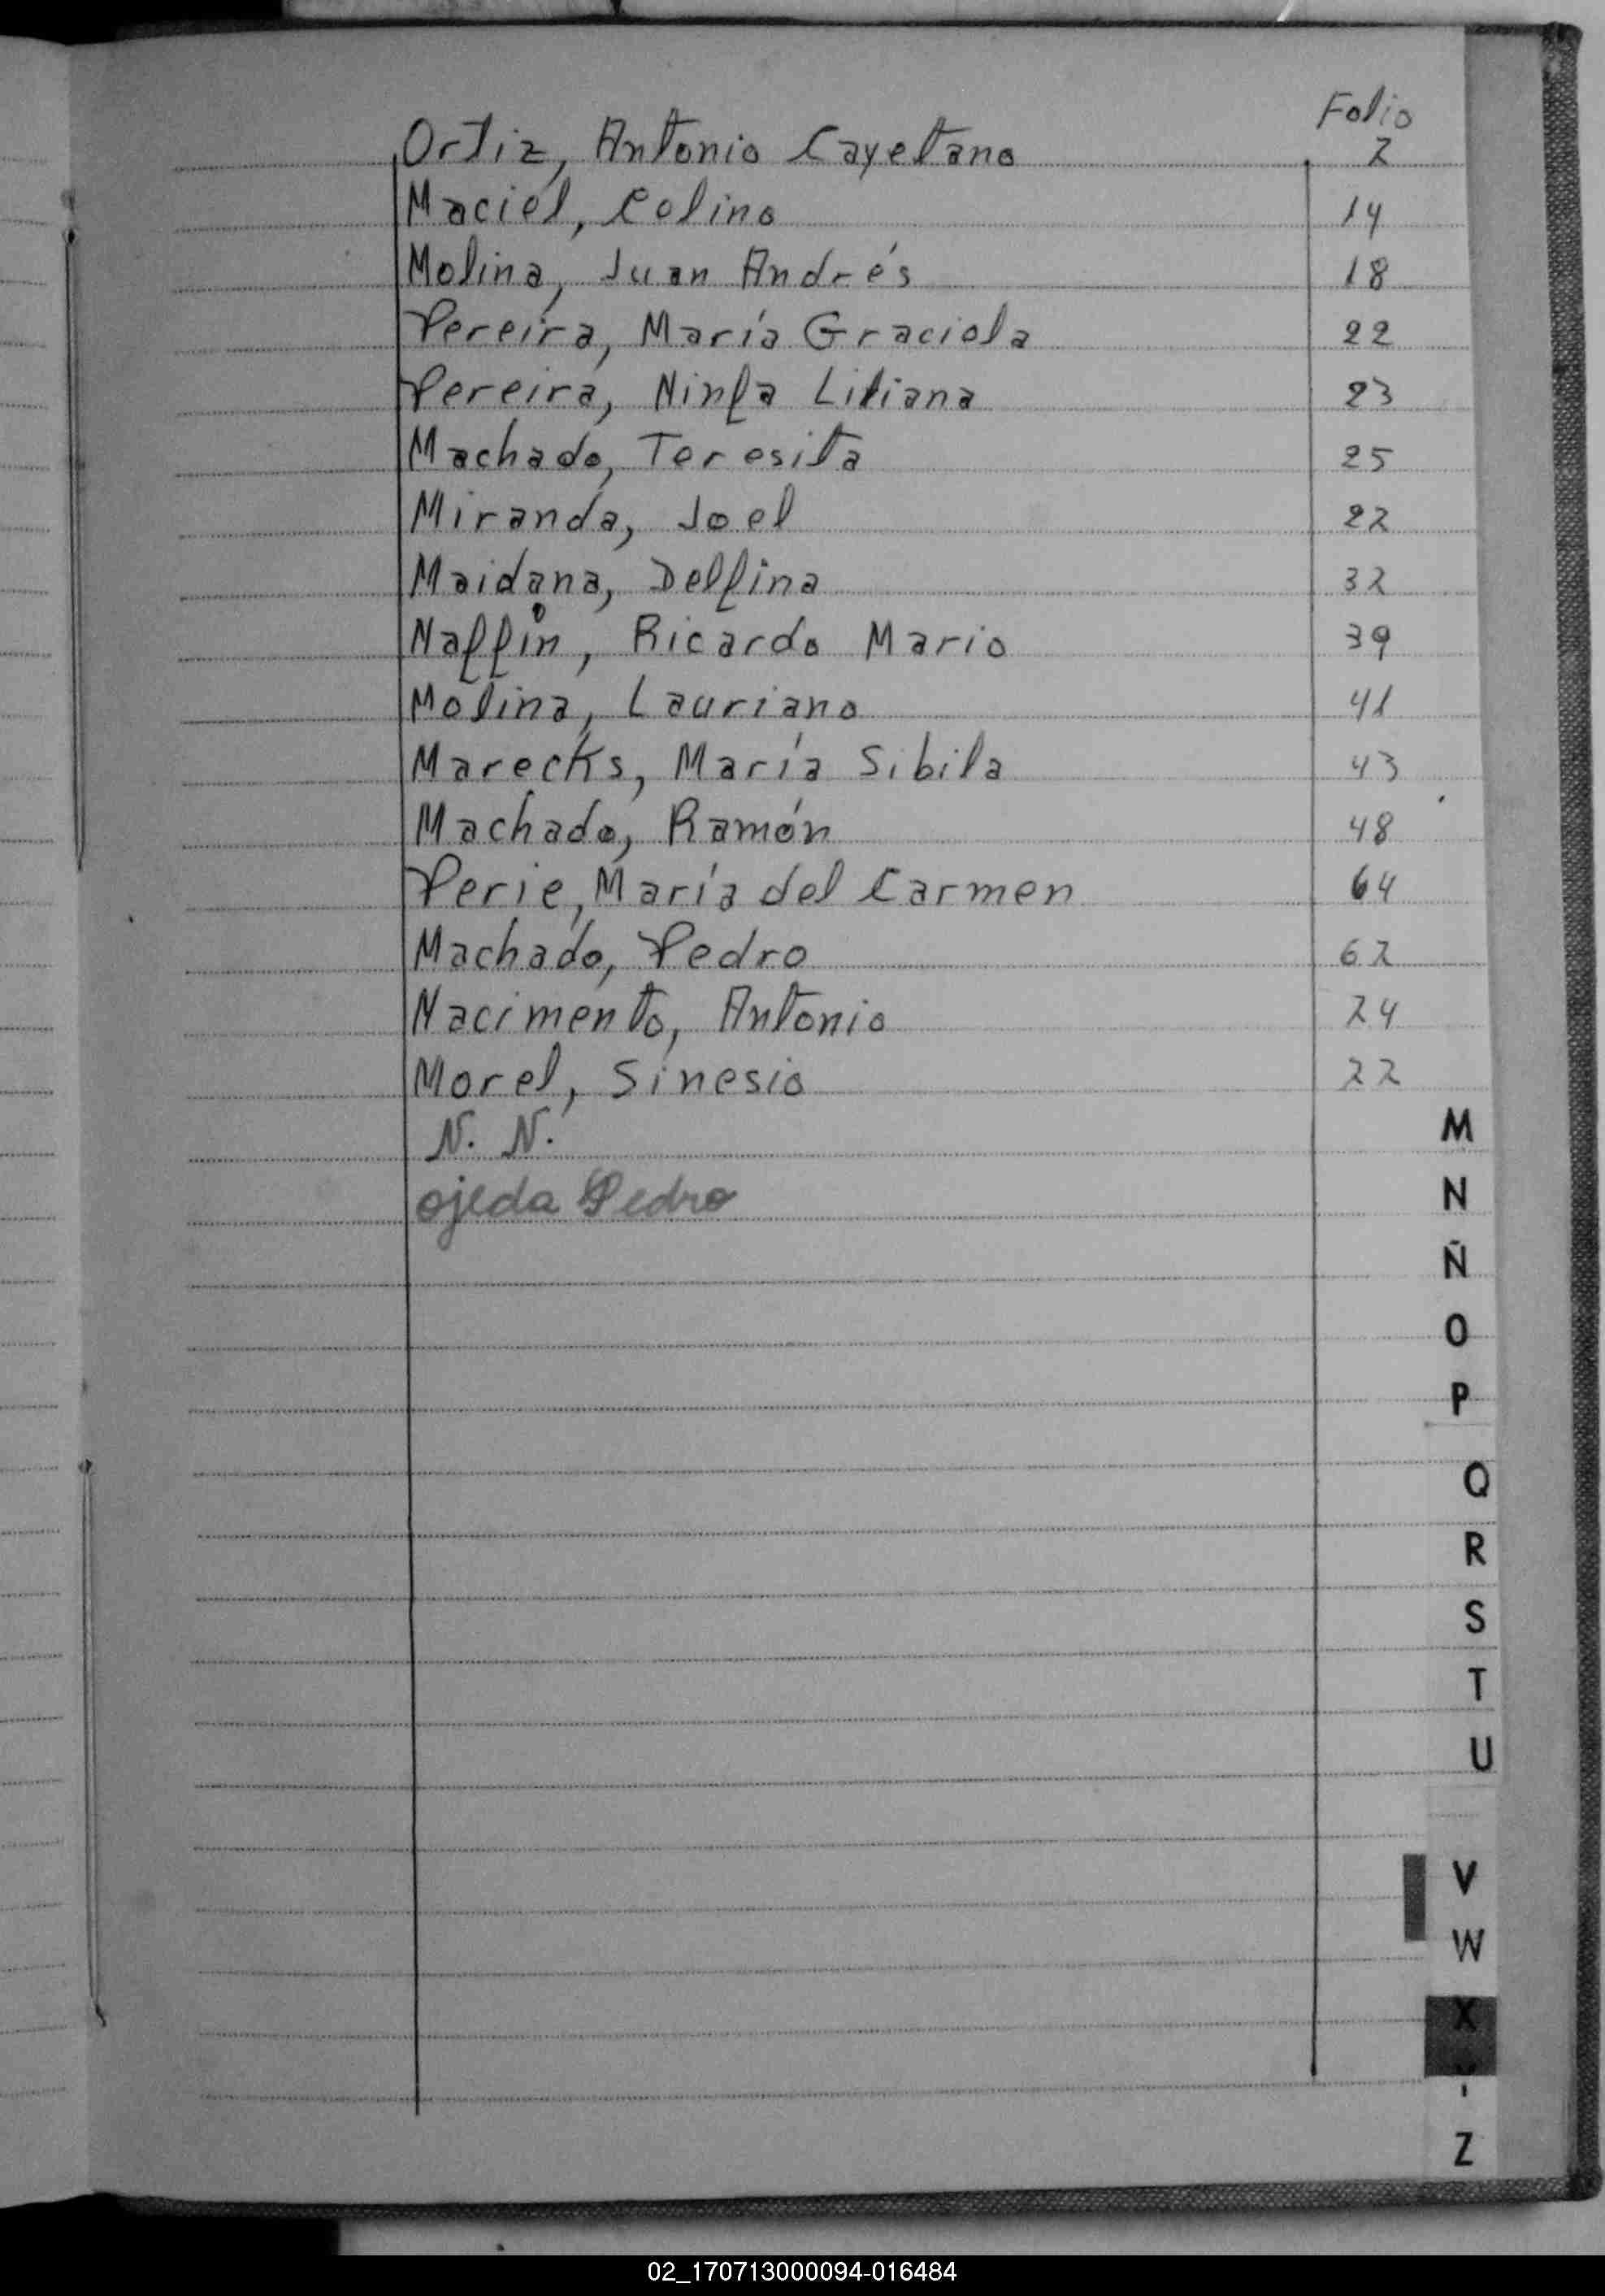 Folio
Ortiz, Antonio Cayetano 2
Maciel, Celino 14
Molina, Juan Andrés 18
Pereira, María Graciela 22
Pereira, Ninfa Liliana 23
Machado, Teresita 25
Miranda, Joel 22
Maidana, Delfina 32
Naffin, Ricardo Mario 39
Molina, Lauriano 41
Marecks, María Sibila 43
Machado, Ramón 48
Perie, María del Carmen 64
Machado, Pedro 62
Nacimento, Antonio 24
Morel, Sinesio 22
N. N.
ojeda Pedro
M
N
Ñ
O
P
Q
R
S
T
U
V
W
X
Y
Z
02_170713000094-016484